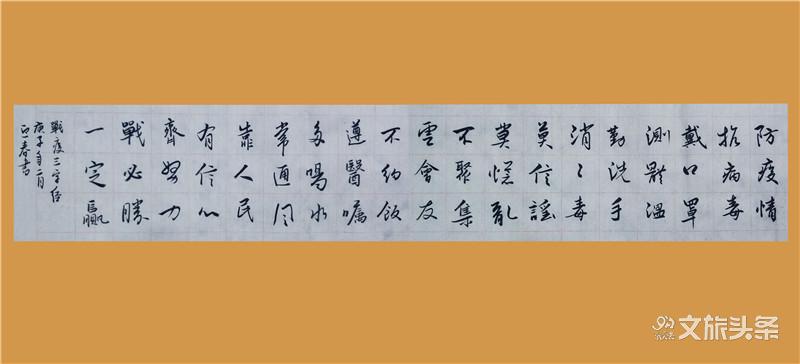 防疫情
抗病毒
戴口罩
測體溫
勤洗手
消消毒
莫信謠
莫慌亂
不聚集
雲會友
不約飯
遵醫囑
多喝水
常通風
靠人民
有信心
齊努力
戰必勝
一定贏
戰疫三字经
庚子年二月
文旅头条